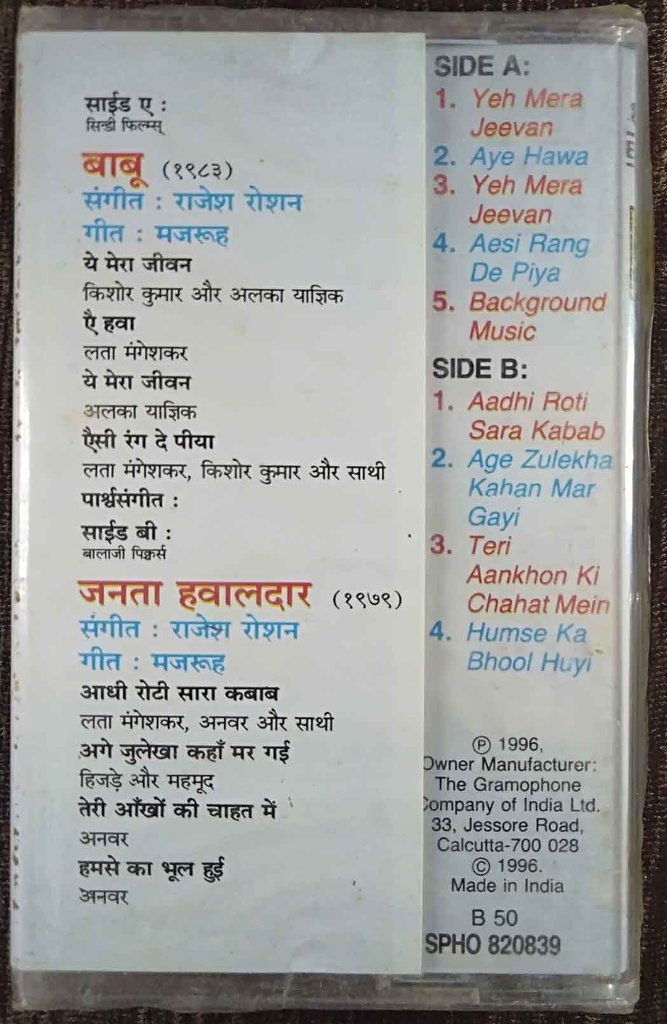 साईड ए :
सिन्डी फिल्म्स्
बाबू (१९८३)
संगीत : राजेश रोशन
गीत : मजरूह
ये मेरा जीवन
किशोर कुमार और अलका याज्ञिक
ऐ हवा
लता मंगेशकर
ये मेरा जीवन
अलका याज्ञिक
ऐसी रंग दे पीया
लता मंगेशकर, किशोर कुमार और साथी
पार्श्वसंगीत :
साईड बी :
बालाजी पिक्चर्स
जनता हवालदार (१९७९)
संगीत : राजेश रोशन
गीत : मजरूह
आधी रोटी सारा कबाब
लता मंगेशकर, अनवर और साथी
अगे जुलेखा कहाँ मर गई
हिजड़े और महमूद
तेरी आँखों की चाहत में
अनवर
हमसे का भूल हुई
अनवर
SIDE A:
1. Yeh Mera
Jeevan
2. Aye Hawa
3. Yeh Mera
Jeevan
4. Aesi Rang
De Piya
5. Background
Music
SIDE B:
1. Aadhi Roti
Sara Kabab
2. Age Zulekha
Kahan Mar
Gayi
3. Teri
Aankhon Ki
Chahat Mein
4. Humse Ka
Bhool Huyi
℗ 1996,
Owner Manufacturer:
The Gramophone
Company of India Ltd.
33, Jessore Road,
Calcutta-700 028
© 1996.
Made in India
B 50
SPHO 820839